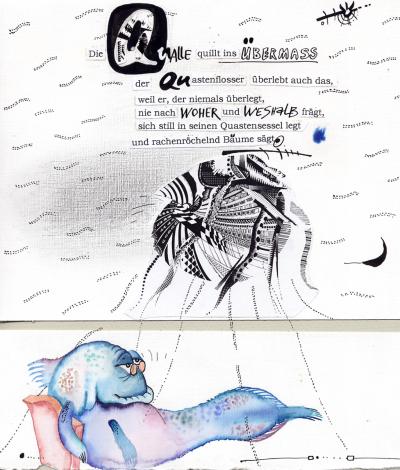 Die QUALLE quillt ins ÜBERMASS
der QUastenflosser überlebt auch das,
weil er, der niemals überlegt,
nie nach WOHER und WESHALB frägt,
sich still in seinen Quastensessel legt
und rachenröchelnd Bäume sägt.